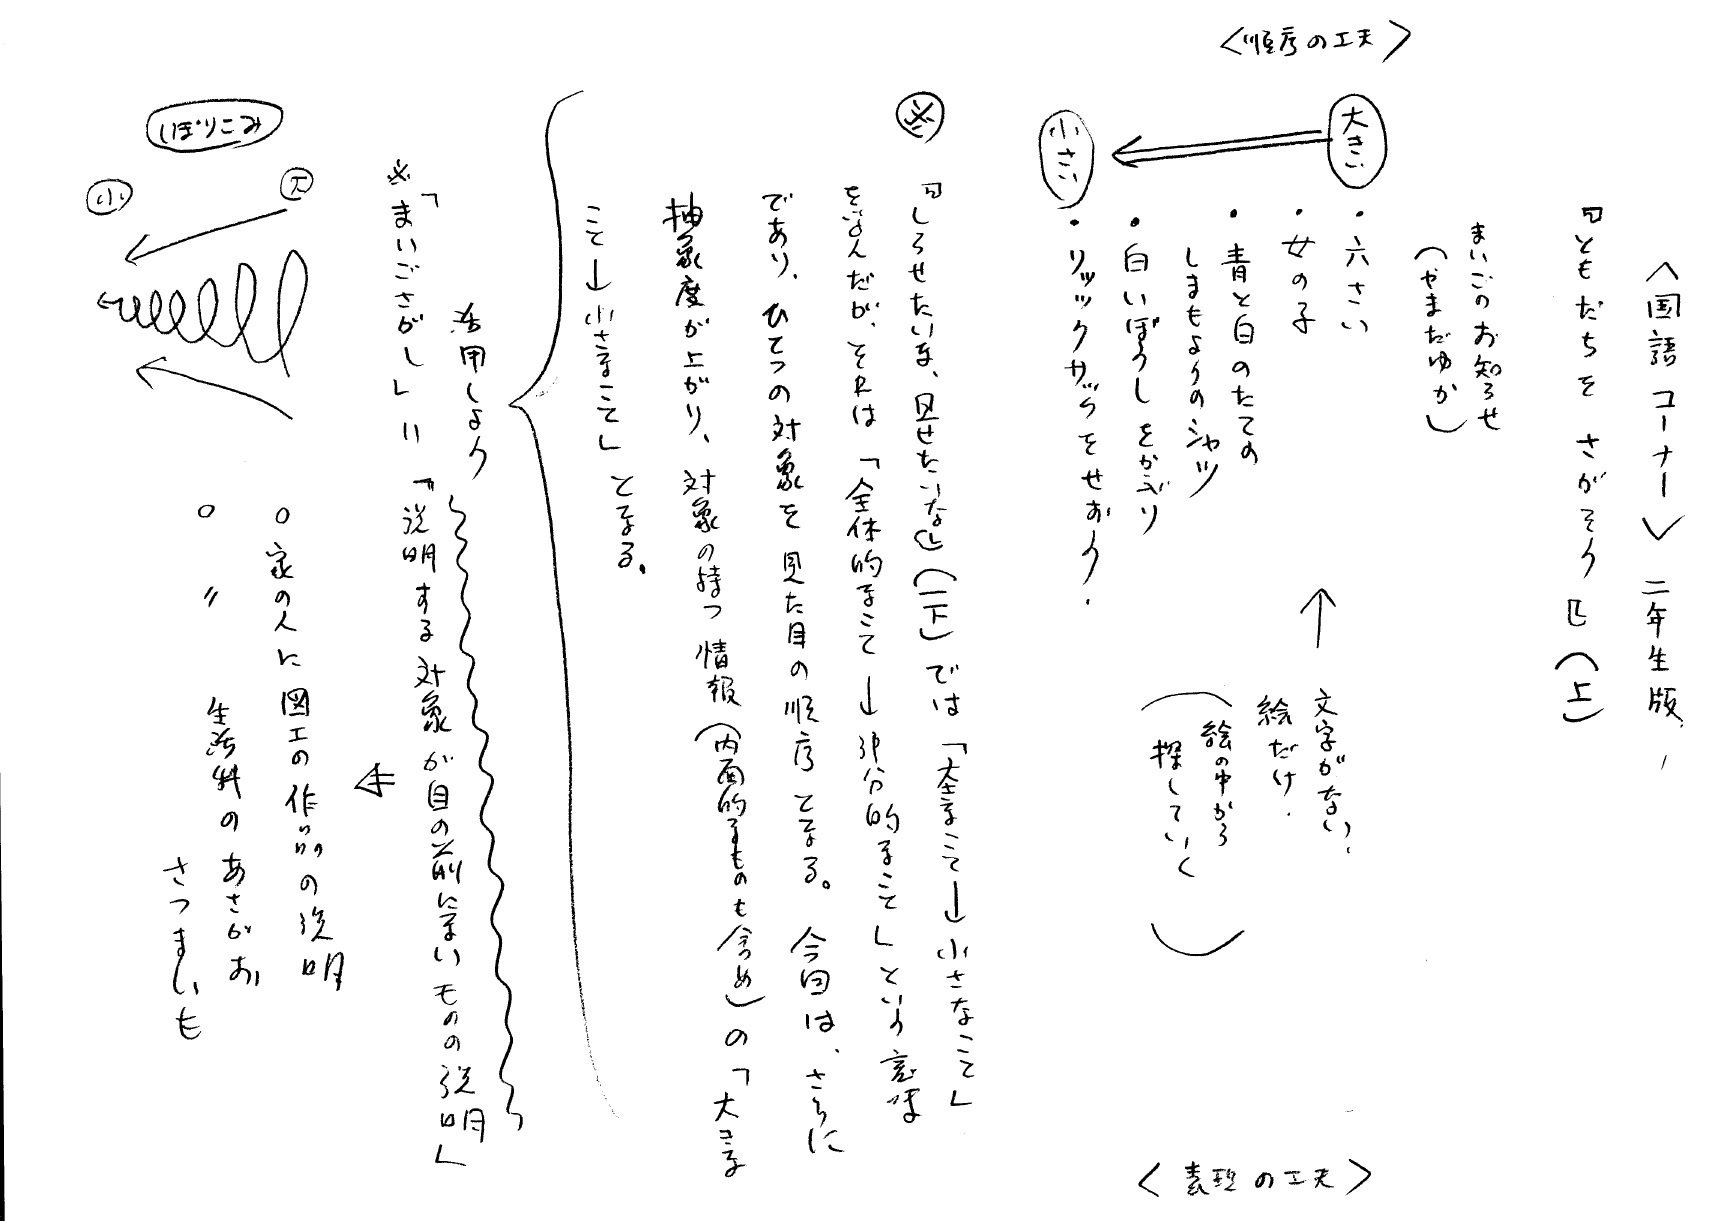 〈国語コーナー〉 二年生版
『ともだちを さがそう』(上)
〈順序の工夫〉
まいごのお知らせ
(やまだゆか)
大きい
・六さい
・女の子
・青と白のたての
しまもようのシャツ
・白いぼうしをかぶり
小さい
・リュックサックをせおう.
文字がない.
絵だけ.
(絵の中から
探していく)
〈表現の工夫〉
※
『しらせたいな、見せたいな』(一下)では「大きなこと→小さなこと」
を学んだが、それは「全体的なこと→部分的なこと」という意味
であり、ひとつの対象を見た目の順序となる。今回は、さらに
抽象度が上がり、対象の持つ情報(内面的なものも含め)の「大きな
こと→小さなこと」となる。
活用しよう
※「まいごさがし」=「説明する対象が目の前にないものの説明」
○家の人に図工の作品の説明
○ 〃 生活科のあさがお
さつまいも
しぼりこみ
大
小